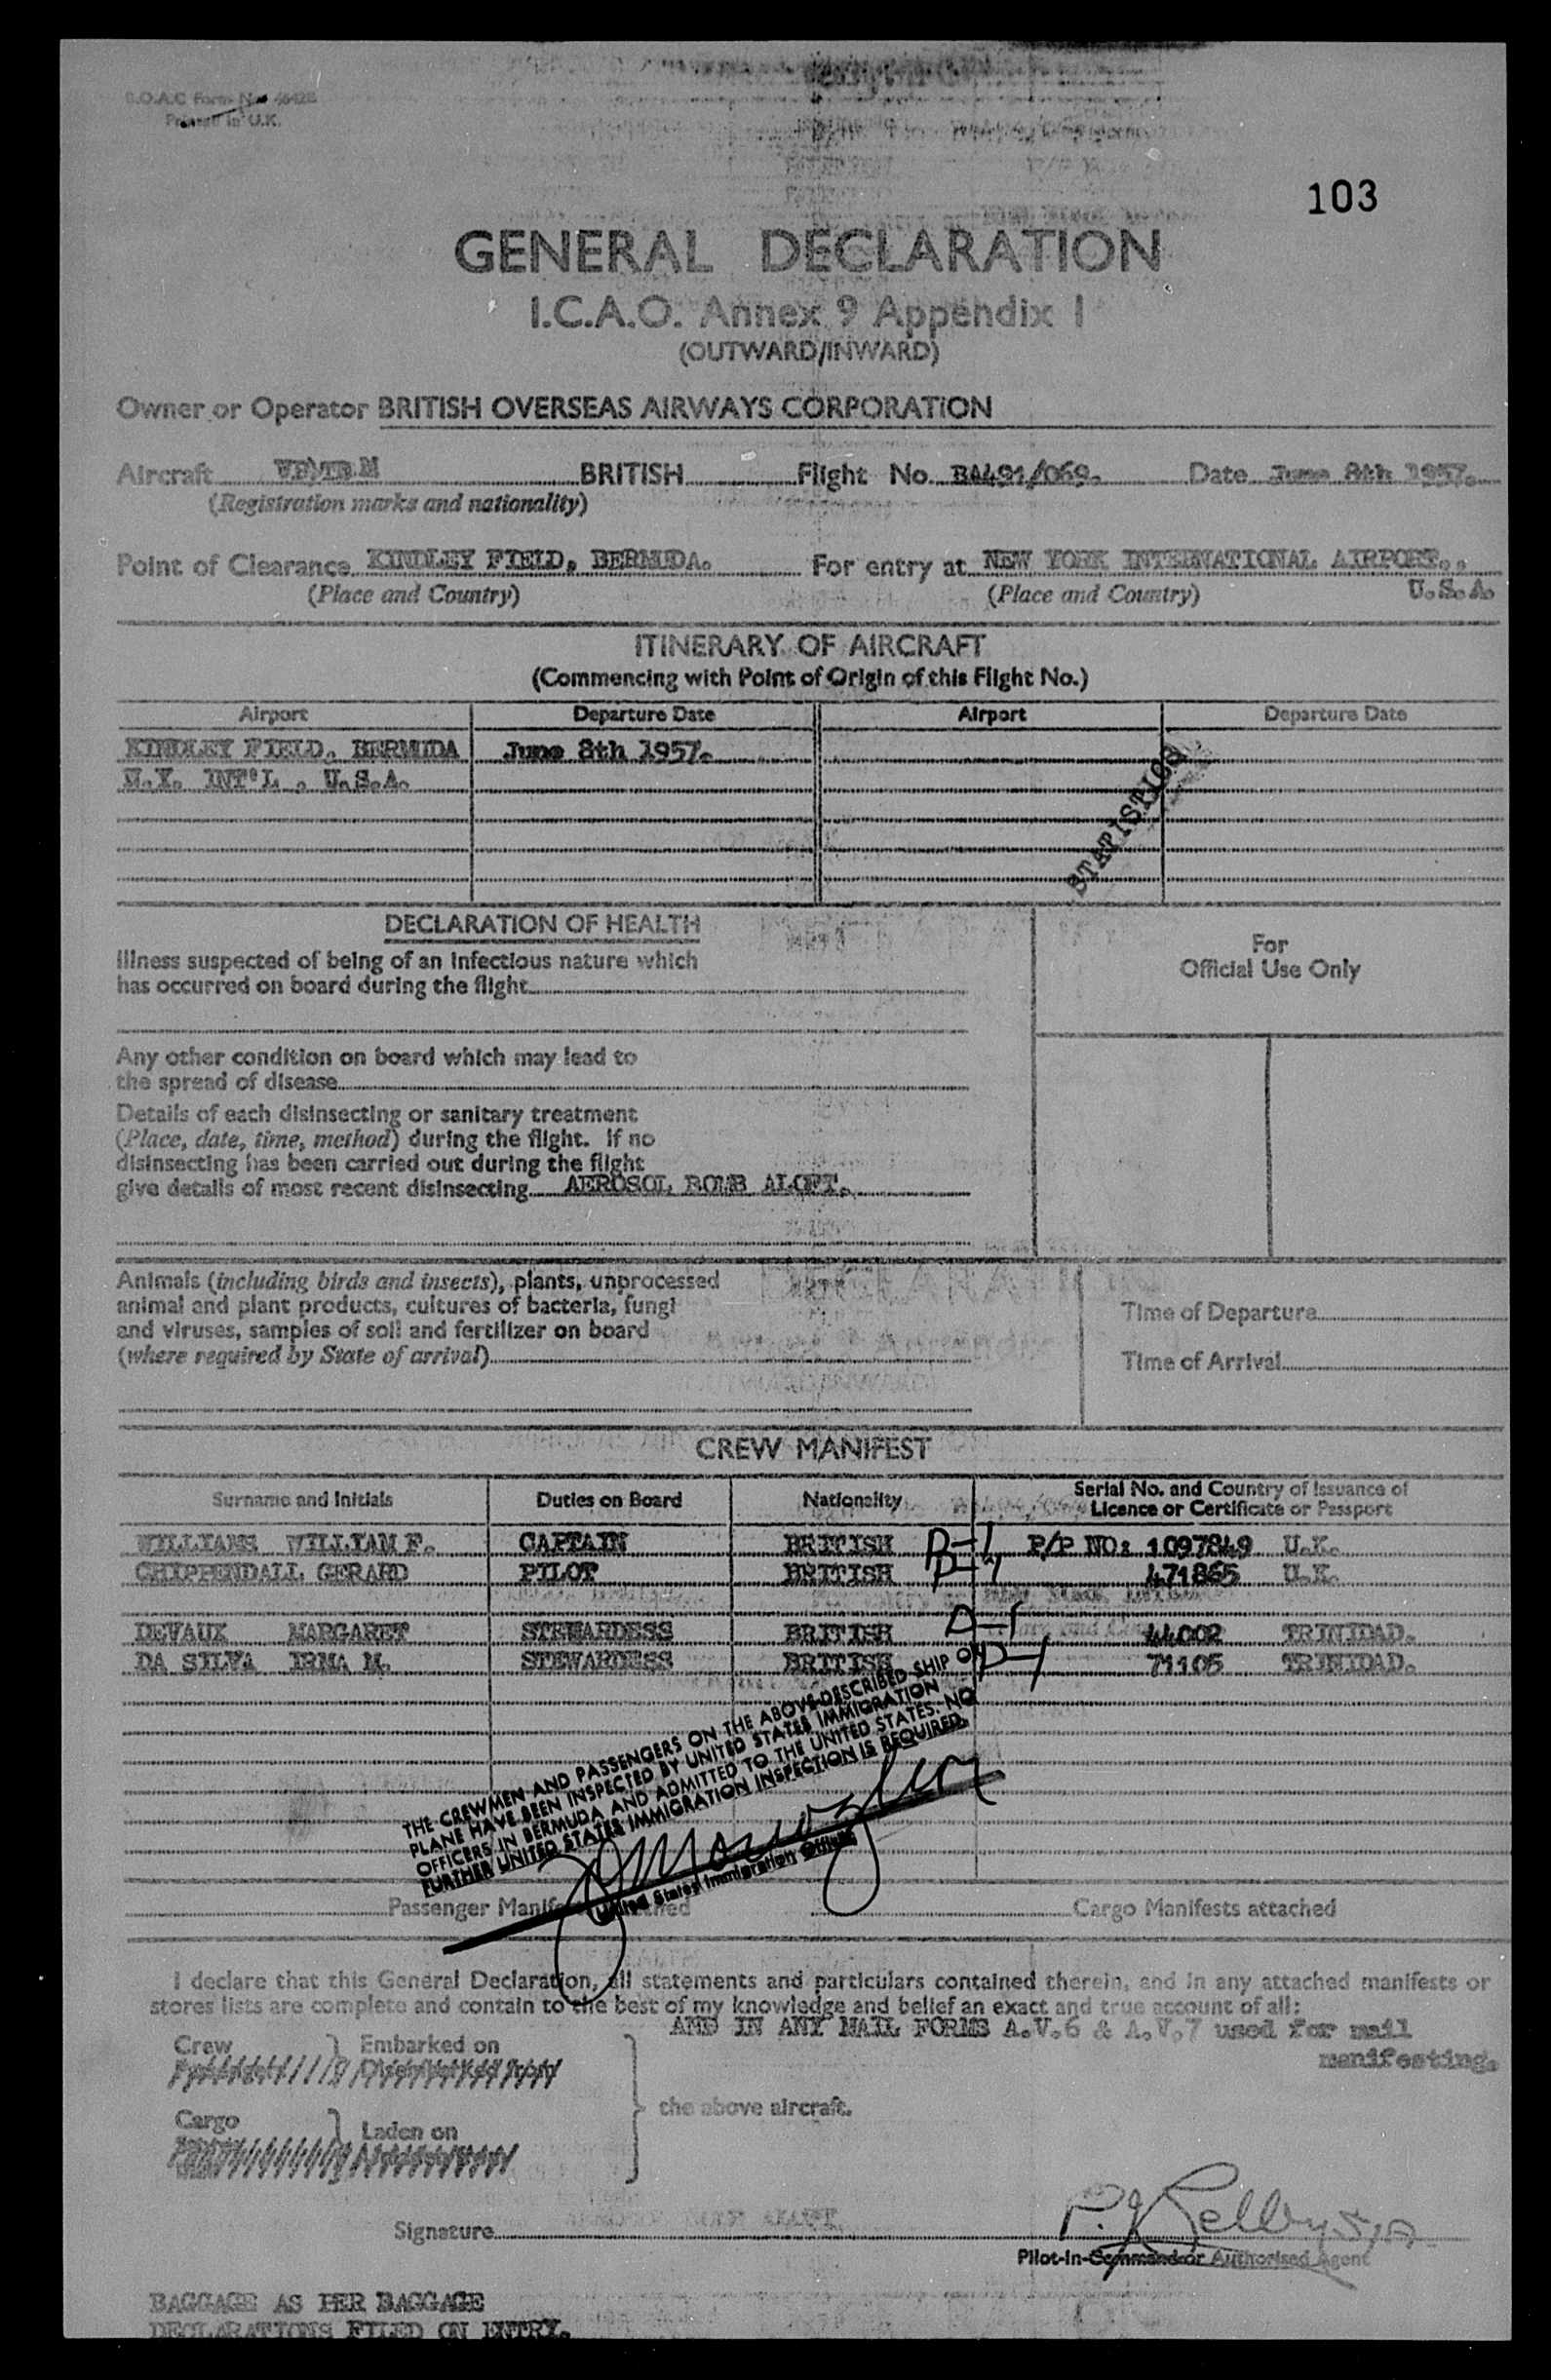 Printed in U.K.
103
GENERAL DECLARATION
I.C.A.O. Annex 9 Appendix I
(OUTWARD/INWARD)
Owner or Operator BRITISH OVERSEAS AIRWAYS CORPORATION
Aircraft BRITISH Flight No. BA491/069. Date June 8th 1957.
(Registration marks and nationality)
Point of Clearance KINDLEY FIELD, BERMUDA. For entry at NEW YORK INTERNATIONAL AIRPORT.,
(Place and Country) (Place and Country) U.S.A.
ITINERARY OF AIRCRAFT
(Commencing with Point of Origin of this Flight No.)
Airport Departure Date Airport Departure Date
KINDLEY FIELD, BERMUDA June 8th 1957.
N.Y. INT'L , U.S.A.
STATISTICS
DECLARATION OF HEALTH
Illness suspected of being of an infectious nature which
has occurred on board during the flight
For
Official Use Only
Any other condition on board which may lead to
the spread of disease
Details of each disinsecting or sanitary treatment
(Place, date, time, method) during the flight. If no
disinsecting has been carried out during the flight
give details of most recent disinsecting AEROSOL BOMB ALOFT.
Animals (including birds and insects), plants, unprocessed
animal and plant products, cultures of bacteria, fungi
and viruses, samples of soil and fertilizer on board
(where required by State of arrival)
Time of Departure
Time of Arrival
CREW MANIFEST
Surname and Initials Duties on Board Nationality Serial No. and Country of Issuance of
Licence or Certificate or Passport
WILLIAMS WILLIAM F. CAPTAIN BRITISH D-1 P/P NO: 1097849 U.K.
CHIPPENDALL GERARD PILOT BRITISH D-1 471865 U.K.
DEVAUX MARGARET STEWARDESS BRITISH D-1 44002 TRINIDAD.
DA SILVA IRMA M. STEWARDESS BRITISH D-1 71105 TRINIDAD.
THE CREWMEN AND PASSENGERS ON THE ABOVE-DESCRIBED SHIP OR
PLANE HAVE BEEN INSPECTED BY UNITED STATES IMMIGRATION
OFFICERS IN BERMUDA AND ADMITTED TO THE UNITED STATES. NO
FURTHER UNITED STATES IMMIGRATION INSPECTION IS REQUIRED.
United States Immigration Officer
Passenger Cargo Manifests attached
I declare that this General Declaration, all statements and particulars contained therein, and in any attached manifests or
stores lists are complete and contain to the best of my knowledge and belief an exact and true account of all:
AND IN ANY MAIL FORMS A.V.6 & A.V.7 used for mail
manifesting.
Crew } Embarked on
the above aircraft.
Cargo } Laden on
Signature
Pilot-in-Command or Authorised Agent
BAGGAGE AS PER BAGGAGE
DECLARATIONS FILED ON ENTRY.